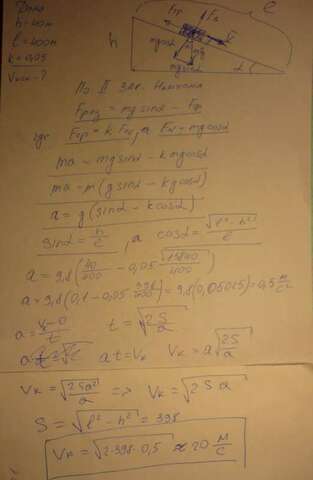 Дано
h=40м
l=400м
k=0,05
Vкон-?
Fтр
Fn
l
h
mgcosα
mg
mgsinα
α
По II Зак. Ньютона
Fрез=mgsinα-Fтр
где Fтр=k Fn, а Fn=mgcosα
ma=mgsinα-kmgcosα
ma=m(gsinα-kgcosα)
a=g(sinα-kcosα)
sinα=h/l, а cosα=√(l²-h²)/l
a=9,8(40/400-0,05 /400)
a=9,8(0,1-0,05·398/400)=9,8(0,05025)=0,5 м/с²
a=(Vк-0)/t t=√(2S/a)
at=Vк Vк=a√(2S/a)
Vк=√(2Sa²/a) => Vк=√(2Sa)
S=√(l²-h²)=398
Vк=√(2·398·0,5)≈20 м/с